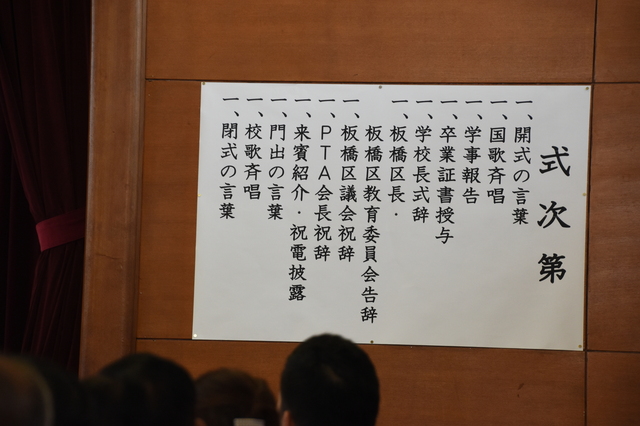 式次第
一、開式の言葉
一、国歌斉唱
一、学事報告
一、卒業証書授与
一、学校長式辞
一、板橋区長・
板橋区教育委員会告辞
一、板橋区議会祝辞
一、PTA会長祝辞
一、来賓紹介・祝電披露
一、門出の言葉
一、校歌斉唱
一、閉式の言葉